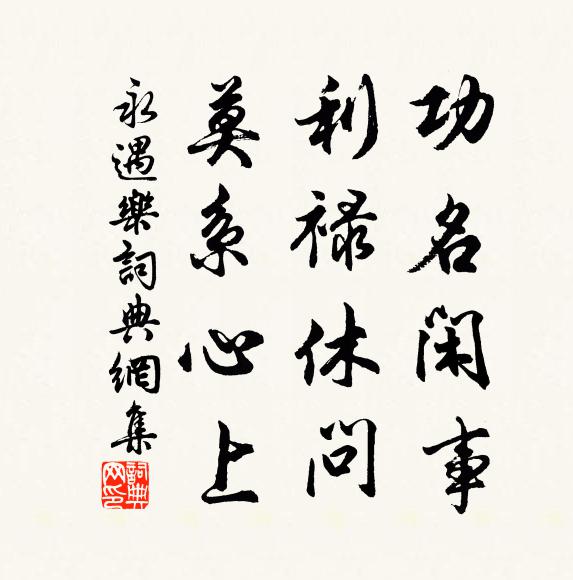 功名閑事
利祿休問
莫系心上
永遇樂詞典網集
詞典网印